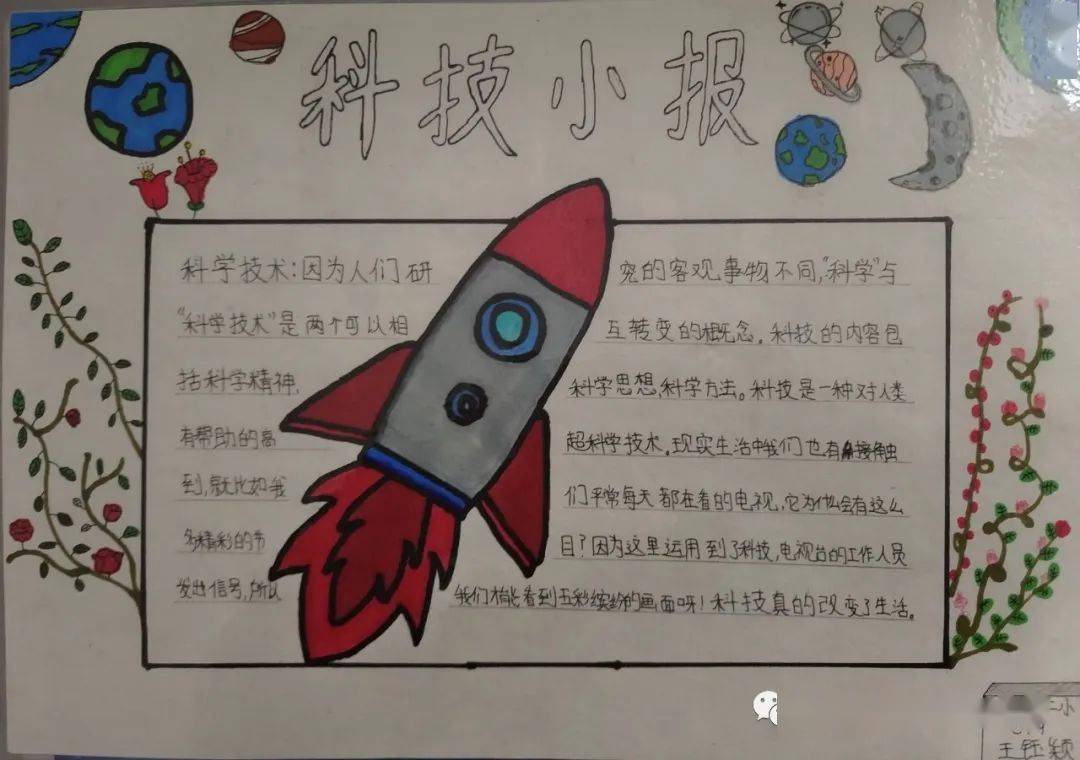 科技小报
科学技术:因为人们研 究的客观事物不同,"科学"与
"科学技术"是两个可以相 互转变的概念。科技的内容包
括科学精神, 科学思想,科学方法。科技是一种对人类
有帮助的高 超科学技术。现实生活中我们也有接触
到,就比如我 们平常每天都在看的电视,它为什么会有这么
多精彩的节 目?因为这里运用到了科技,电视台的工作人员
发出信号,所以 我们才能看到五彩缤纷的画面呀!科技真的改变了生活。
二小
王钰颖